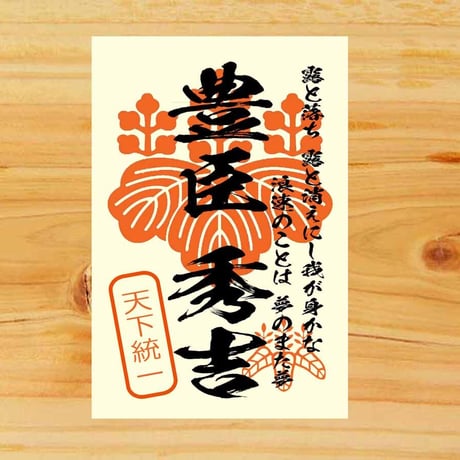 露と落ち 露と消えにし我が身かな
浪速のことは 夢のまた夢
豊臣秀吉
天下統一